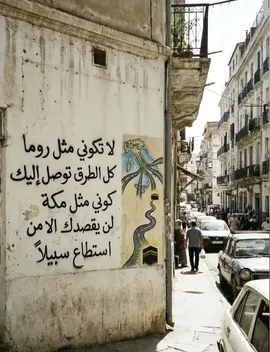 لا تكوني مثل روما
كل الطرق توصل إليك
كوني مثل مكة
لن يقصدك الا من
استطاع سبيلاً
ROME